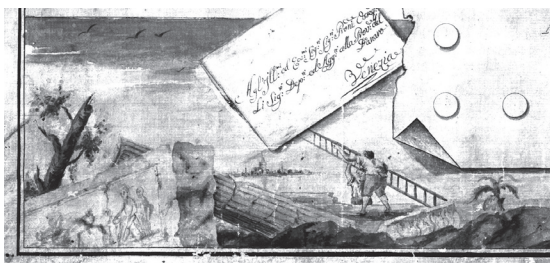 Agl' Ill.mi ed Ecc.mi Sig.ri Sig.ri
Li Sig.ri Dep.ti ed Agg.ti alla Prov.l del
Danaro
Venezia